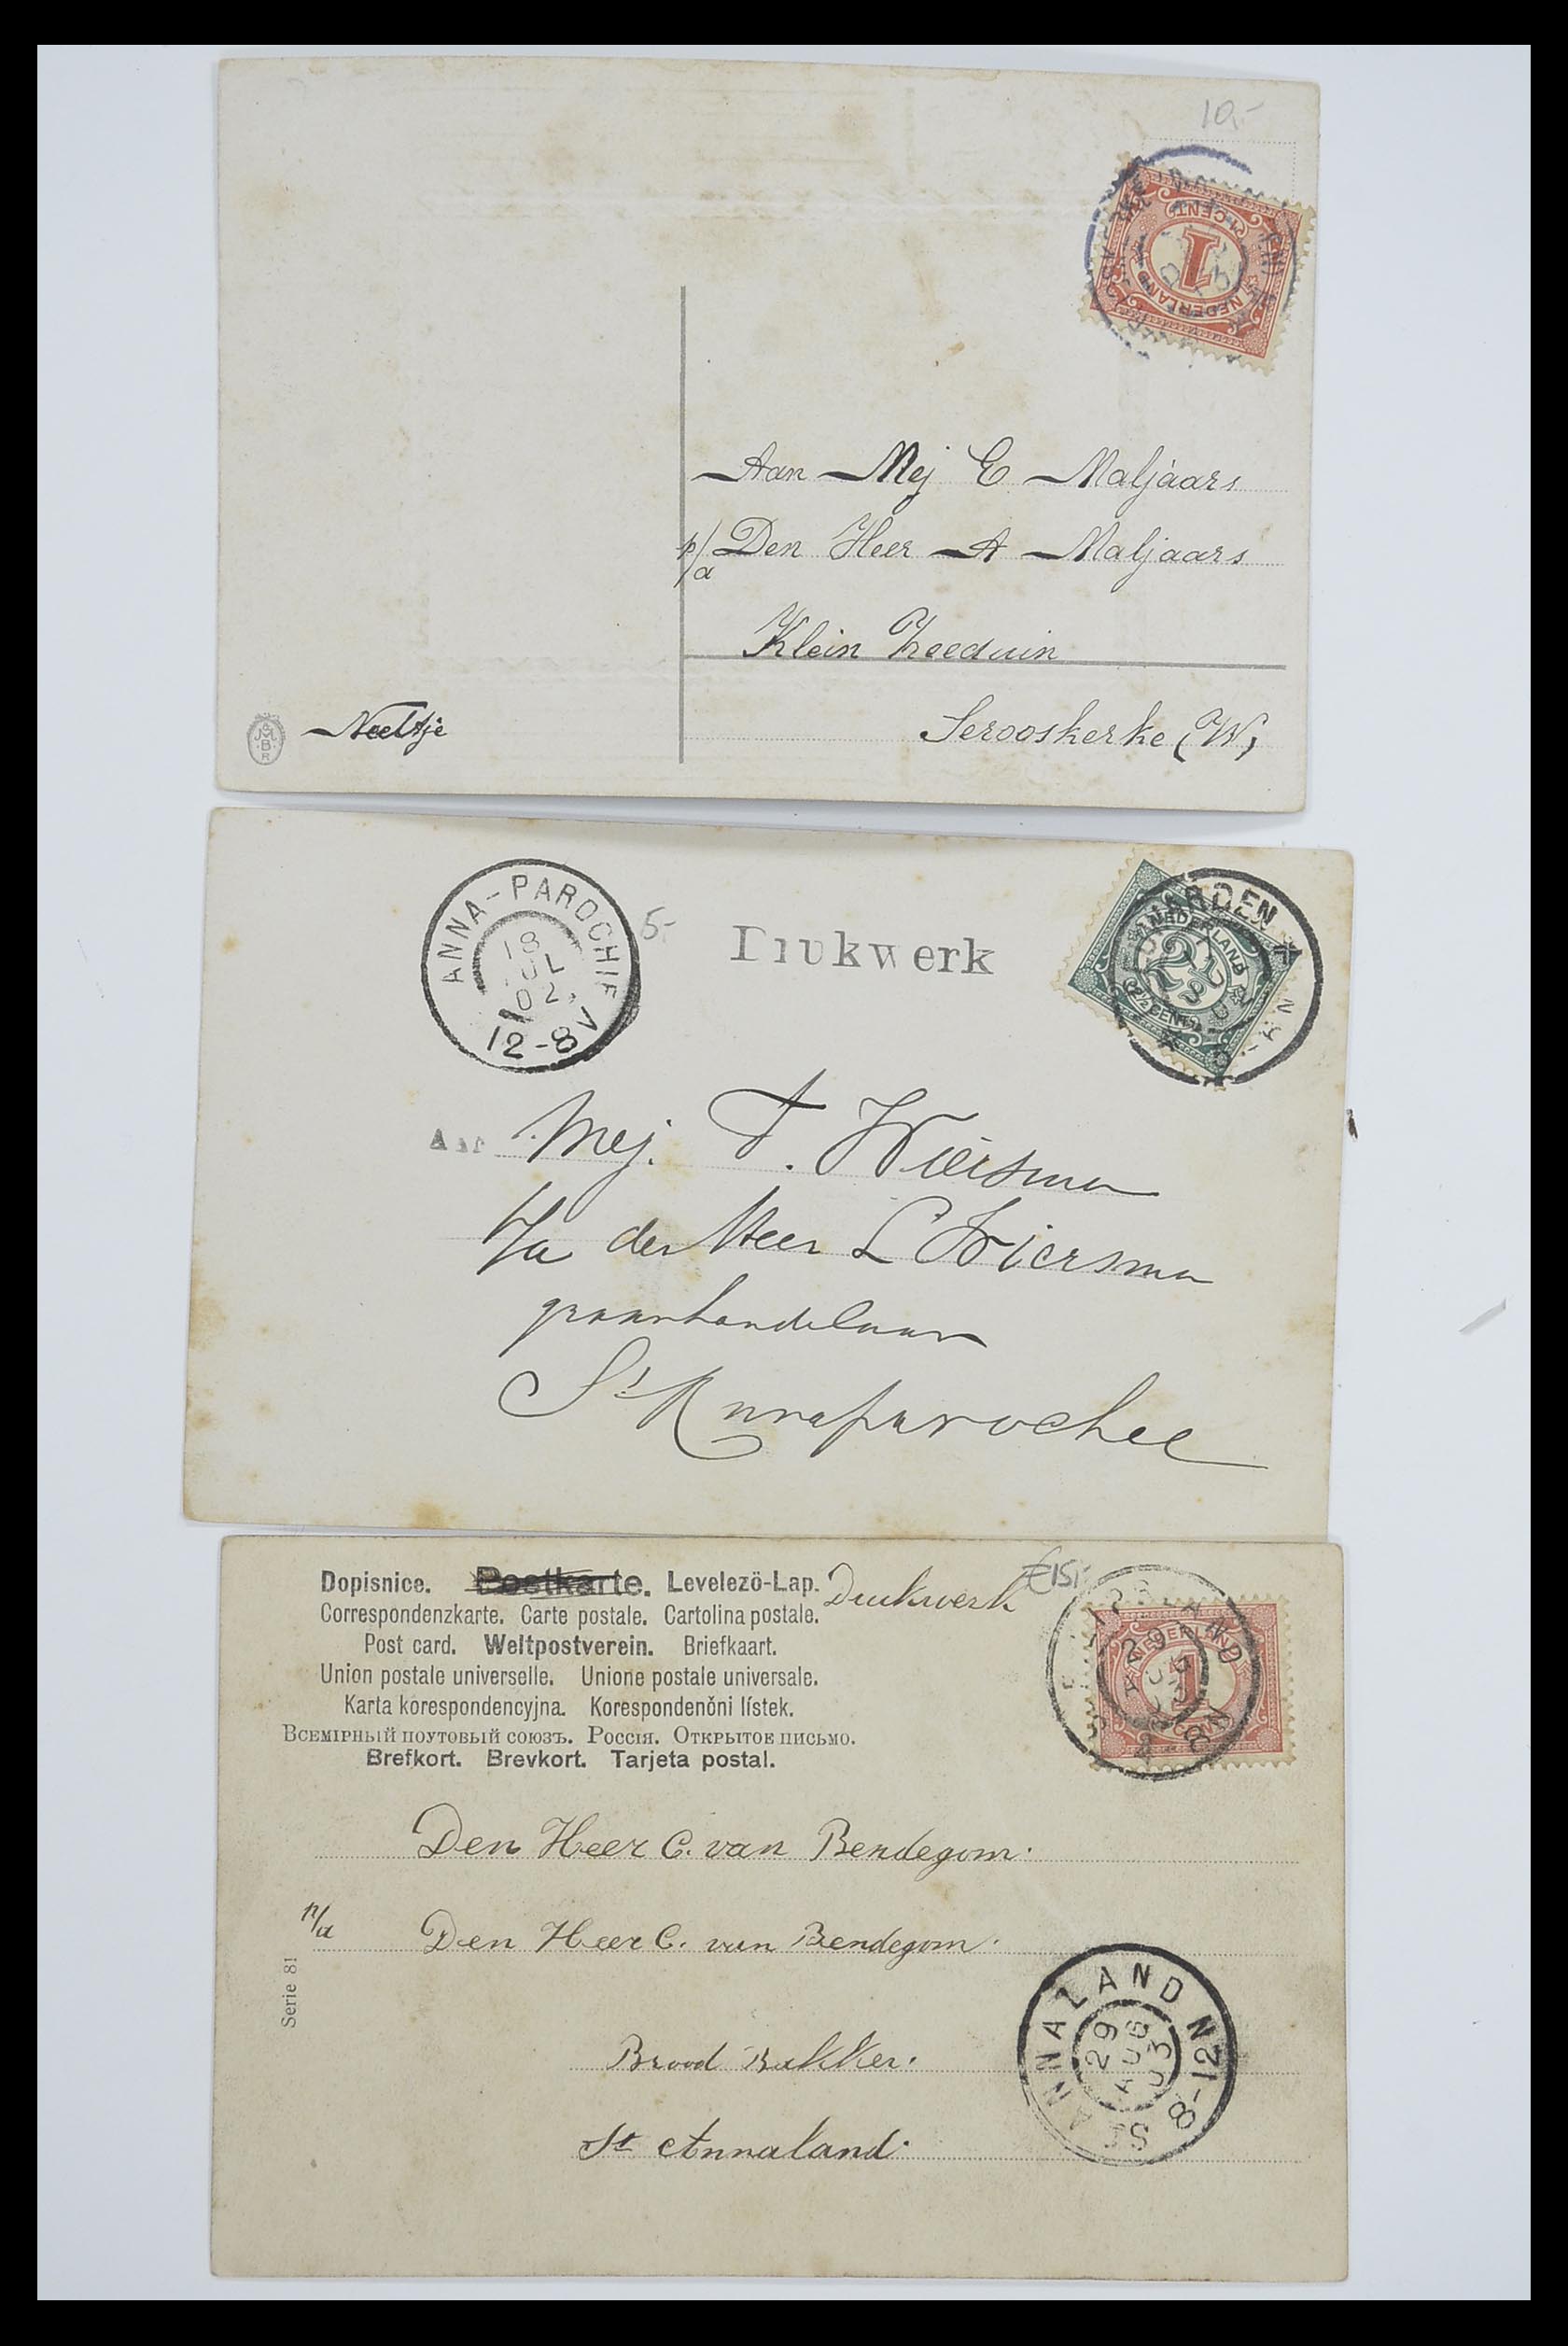 10,-
1 CENT
1
NEDERLAND
Aan Mej E Maljaars
p/a Den Heer A Maljaars
Klein Zeeduin
Serooskerke (W)
Neeltje
AM
B
R
ANNA-PAROCHIE
18
JUL
02
12-8V
5-
Drukwerk
NEDERLAND
2½
2½ CENT
Aan Mej. F. Wiersma
p/a den Heer L Wiersma
graanhandelaar
St Annaparochie
Dopisnice. Postkarte. Levelezö-Lap. Drukwerk
€15,-
Correspondenzkarte. Carte postale. Cartolina postale.
Post card. Weltpostverein. Briefkaart.
Union postale universelle. Unione postale universale.
Karta korespondencyjna. Korespondenčni lístek.
Всемірный поутовый союзъ. Россія. Открытое письмо.
Brefkort. Brevkort. Tarjeta postal.
NEDERLAND
1
29
AUG
03
8-12N
Den Heer C. van Bendegom.
p/a Den Heer C. van Bendegom.
Brood Bakker.
St Annaland.
Serie 81
ST ANNALAND
29
AUG
03
8-12N